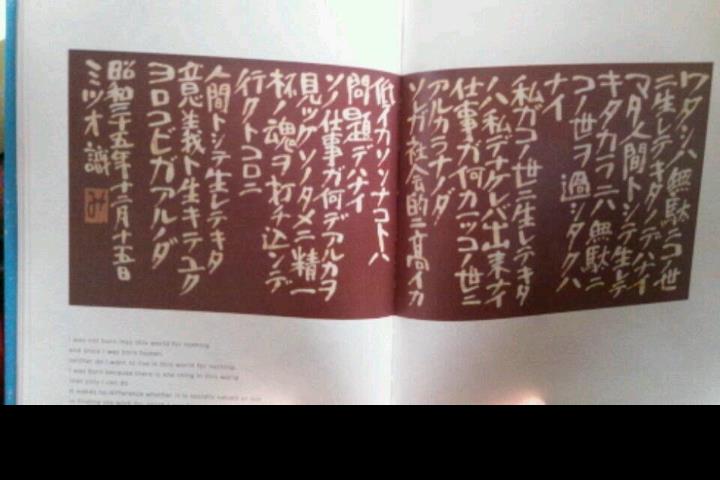 ワタシハ無駄ニコノ世
ニ生レテキタノデハナイ
マタ人間トシテ生レテ
キタカラニハ無駄ニ
コノ世ヲ過シタクハ
ナイ
私ガコノ世ニ生レテキタ
ノハ私デナケレバ出来ナイ
仕事ガ何カ一ツコノ世ニ
アルカラナノダ
ソレガ社会的ニ高イカ
低イカソンナコトハ
問題デハナイ
ソノ仕事ガ何デアルカヲ
見ツケソノタメニ精一
杯ノ魂ヲ打チ込ンデ
行クトコロニ
人間トシテ生レテキタ
意義ト生キテユク
ヨロコビガアルノダ
昭和三十五年十二月十五日
ミツオ識
み
I was not born into this world for nothing
and since I was born human,
neither do I want to live in this world for nothing.
I was born because there is one thing in this world
that only I can do.
It makes no difference whether it is socially valued or not